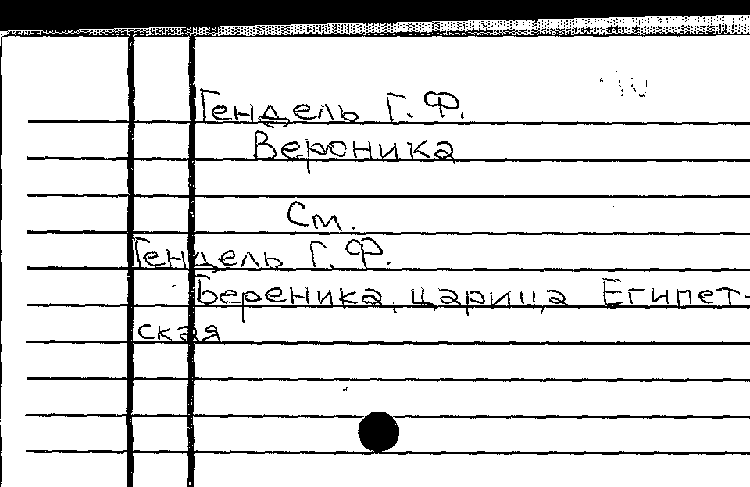 Гендель Г. Ф.
Вероника
См.
Гендель Г. Ф.
Береника, царица Египет-
ская